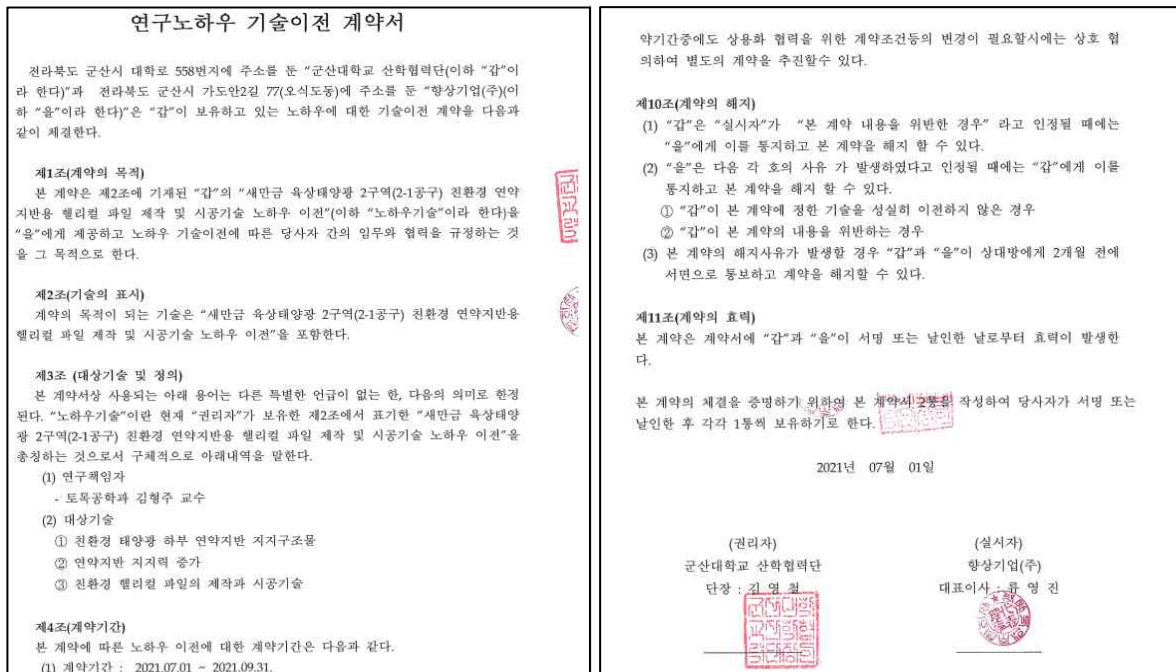 연구노하우 기술이전 계약서
전라북도 군산시 대학로 558번지에 주소를 둔 “군산대학교 산학협력단(이하 “갑”이
라 한다)”과 전라북도 군산시 가도안2길 77(오식도동)에 주소를 둔 “향상기업(주)(이
하 “을”이라 한다)”은 “갑”이 보유하고 있는 노하우에 대한 기술이전 계약을 다음과
같이 체결한다.
제1조(계약의 목적)
본 계약은 제2조에 기재된 “갑”의 “새만금 육상태양광 2구역(2-1공구) 친환경 연약
지반용 헬리컬 파일 제작 및 시공기술 노하우 이전”(이하 “노하우기술”이라 한다)을
“을”에게 제공하고 노하우 기술이전에 따른 당사자 간의 임무와 협력을 규정하는 것
을 그 목적으로 한다.
제2조(기술의 표시)
계약의 목적이 되는 기술은 “새만금 육상태양광 2구역(2-1공구) 친환경 연약지반용
헬리컬 파일 제작 및 시공기술 노하우 이전”을 포함한다.
제3조 (대상기술 및 정의)
본 계약서상 사용되는 아래 용어는 다른 특별한 언급이 없는 한, 다음의 의미로 한정
된다. “노하우기술”이란 현재 “권리자”가 보유한 제2조에서 표기한 “새만금 육상태양
광 2구역(2-1공구) 친환경 연약지반용 헬리컬 파일 제작 및 시공기술 노하우 이전”을
총칭하는 것으로서 구체적으로 아래내역을 말한다.
(1) 연구책임자
- 토목공학과 김형주 교수
(2) 대상기술
① 친환경 태양광 하부 연약지반 지지구조물
② 연약지반 지지력 증가
③ 친환경 헬리컬 파일의 제작과 시공기술
제4조(계약기간)
본 계약에 따른 노하우 이전에 대한 계약기간은 다음과 같다.
(1) 계약기간 : 2021.07.01 ~ 2021.09.31.
약기간중에도 상용화 협력을 위한 계약조건등의 변경이 필요할시에는 상호 협
의하여 별도의 계약을 추진할수 있다.
제10조(계약의 해지)
(1) “갑”은 “실시자”가 “본 계약 내용을 위반한 경우” 라고 인정될 때에는
“을”에게 이를 통지하고 본 계약을 해지 할 수 있다.
(2) “을”은 다음 각 호의 사유 가 발생하였다고 인정될 때에는 “갑”에게 이를
통지하고 본 계약을 해지 할 수 있다.
① “갑”이 본 계약에 정한 기술을 성실히 이전하지 않은 경우
② “갑”이 본 계약의 내용을 위반하는 경우
(3) 본 계약의 해지사유가 발생할 경우 “갑”과 “을”이 상대방에게 2개월 전에
서면으로 통보하고 계약을 해지할 수 있다.
제11조(계약의 효력)
본 계약은 계약서에 “갑”과 “을”이 서명 또는 날인한 날로부터 효력이 발생한
다.
본 계약의 체결을 증명하기 위하여 본 계약서 2통을 작성하여 당사자가 서명 또는
날인한 후 각각 1통씩 보유하기로 한다.
2021년 07월 01일
(권리자)
군산대학교 산학협력단
단장 : 김 영 철
(실시자)
향상기업(주)
대표이사 : 류 영 진